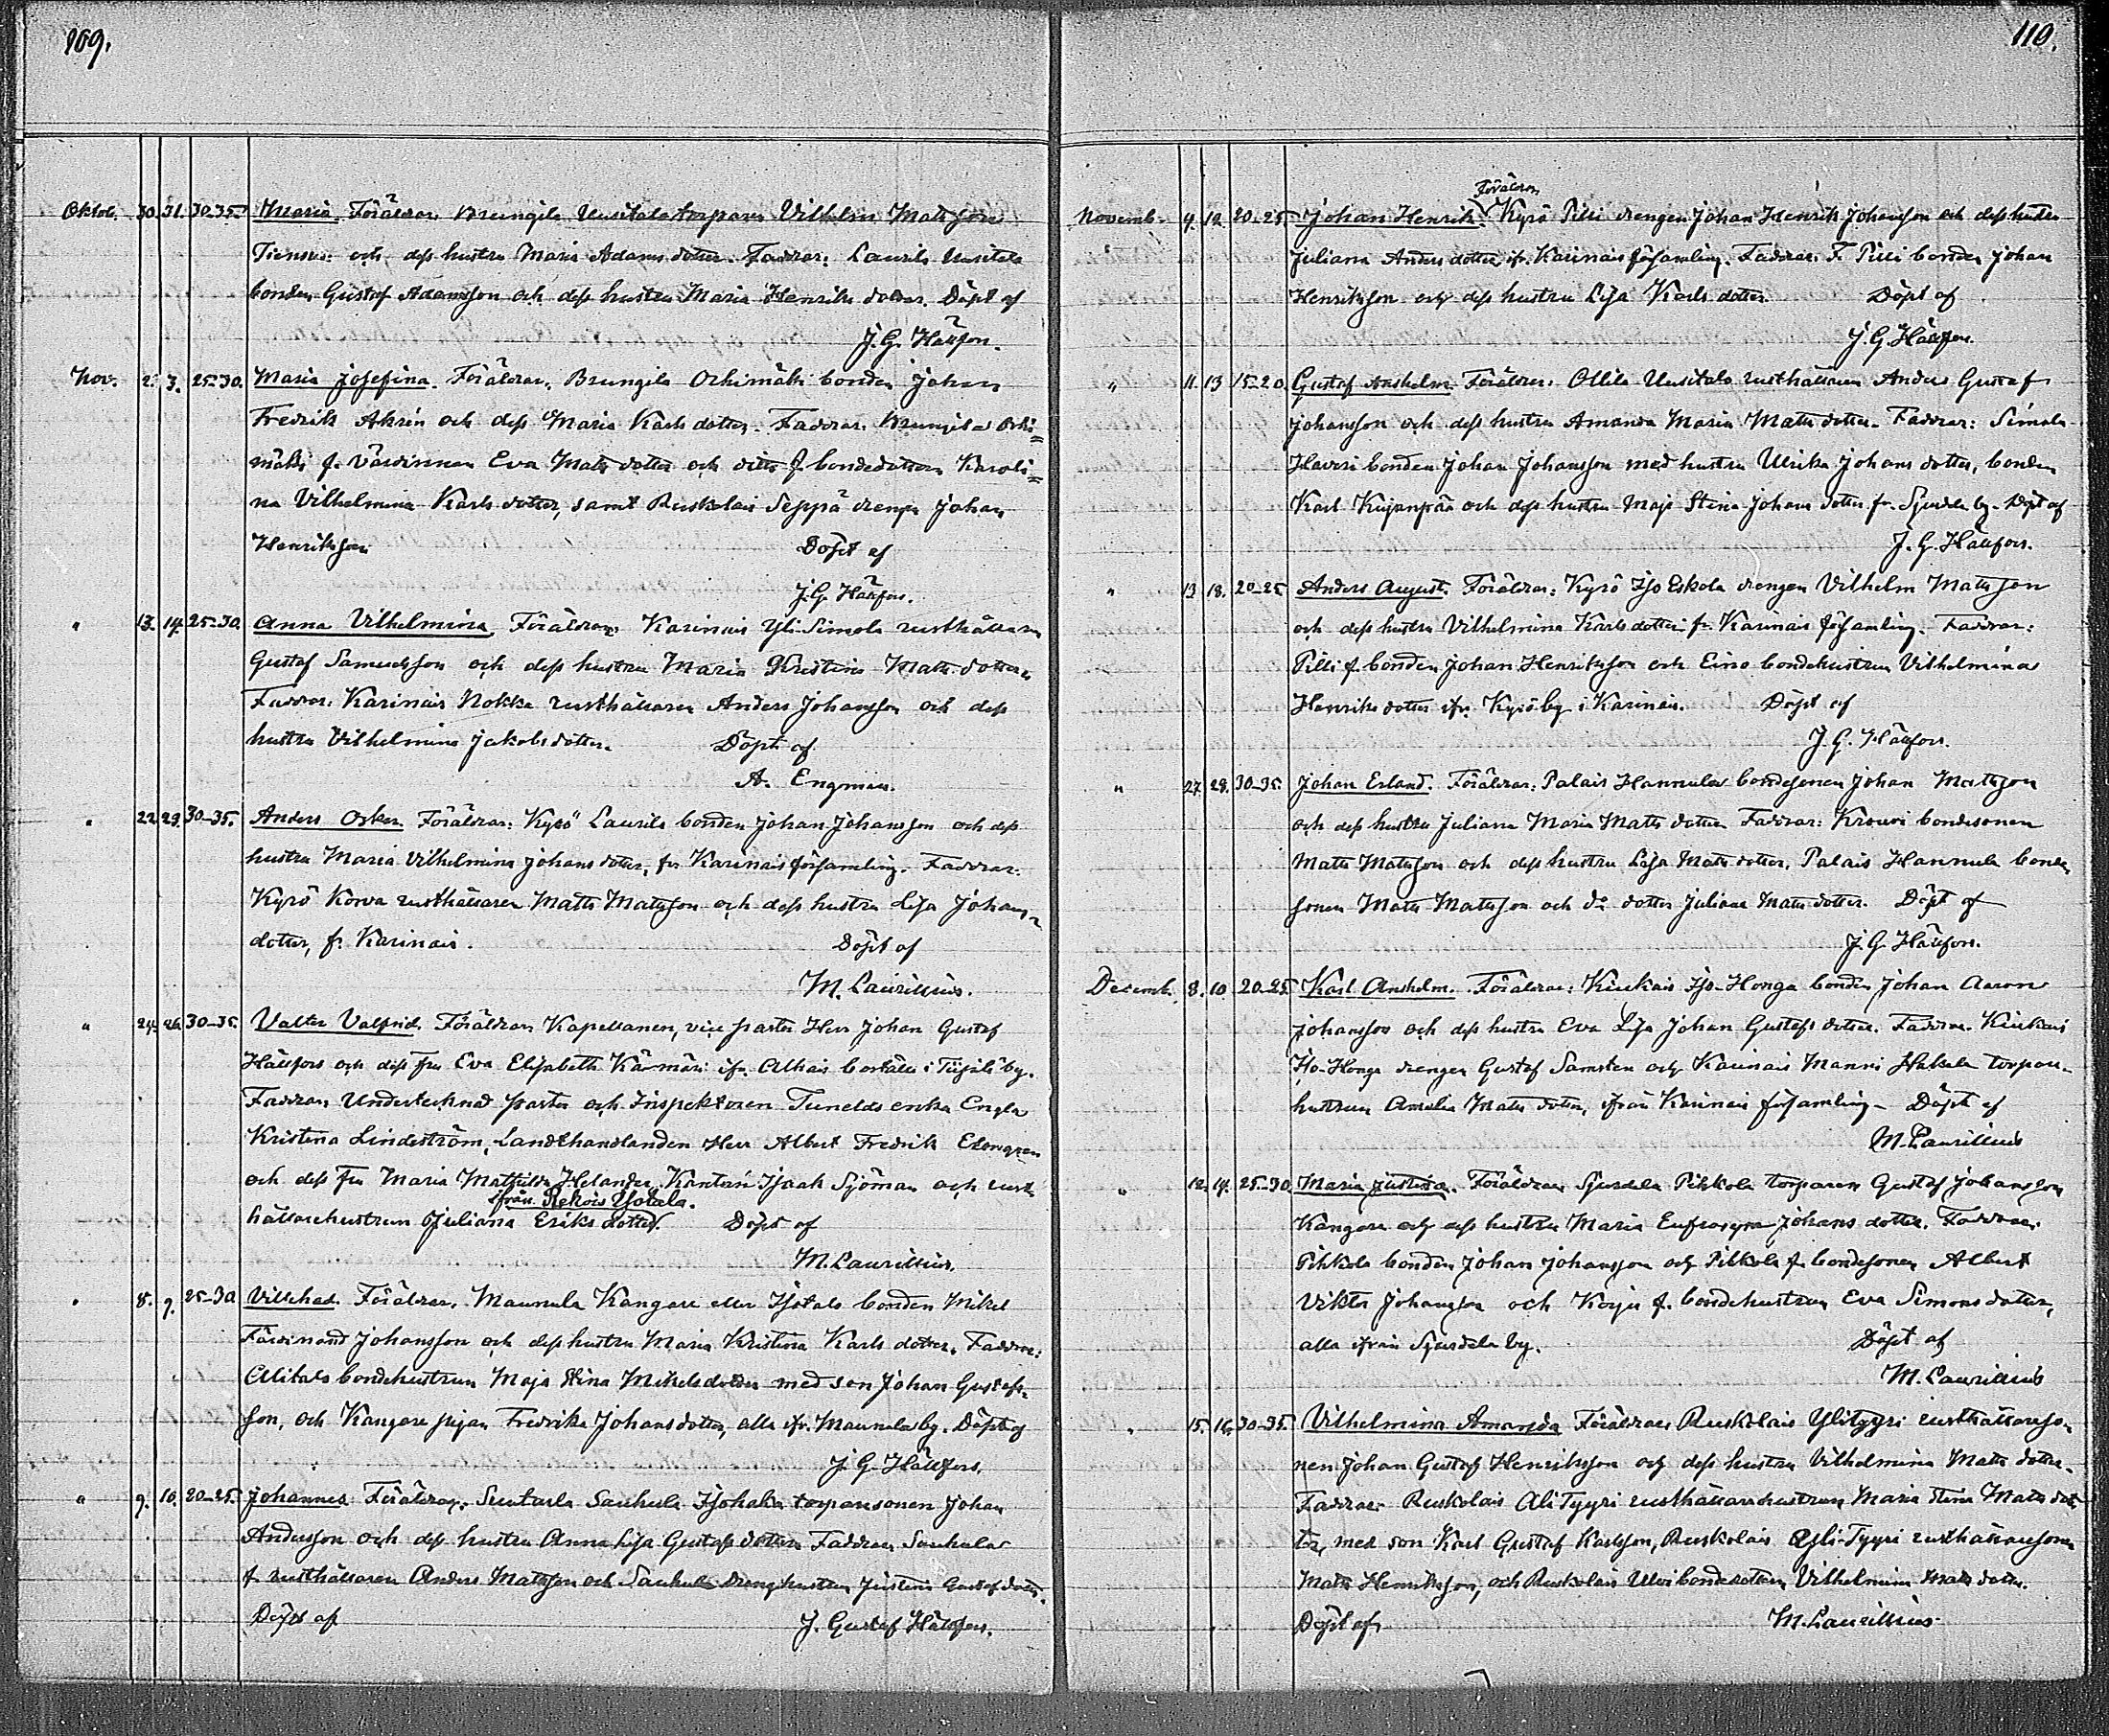 109.
Oktob. 30. 31. 30-35. Maria. Föräldrar Brungila Uusitalo torparen Vilhelm Mattsson
och dess hustru Maria Adams dotter. Faddrar: Laurila Uusitalo
bonden Gustaf Adamsson och dess hustru Maria Henriks dotter. Döpt af
J. G. Hällfors.
Nov. 3. 25-30. Maria Josefina. Föräldrar, Brungila Orhimäki bonden Johan
Fredrik Akrén och dess Maria Karls dotter. Faddrar. Brungila Orhi=
mäki f. värdinnan Eva Matts dotter och ditto f. bondedottern Karoli=
na Vilhelmina Karls dotter, samt Ruskolais Seppä drengen Johan
Henriksson Döpt af
J. G. Hällfors.
" 13. 14. 25-30. Anna Vilhelmina. Föräldrar Karinais Yli-Simola rusthållaren
Gustaf Samuelsson och dess hustru Maria Kristina Matts dotter.
Faddrar. Karinais Nokka rusthållaren Anders Johansson och dess
hustru Vilhelmina Jakobs dotter. Döpt af
A. Engman.
" 22. 23. 30-35. Anders Oskar. Föräldrar: Kyrö Laurila bonden Johan Johansson och dess
hustru Maria Vilhelmina Johans dotter, fr Karinais församling. Faddrar:
Kyrö Korva rusthållaren Matts Mattsson och dess hustru Lisa Johans-
dotter, fr. Karinais. Döpt af
M. Laurillius.
" 24. 26. 30-35. Valter Valfrid. Föräldrar Kapellanen, vice pastor Herr Johan Gustaf
Hällfors och dess fru Eva Elisabeth Kärmäri ifr. Alhais boställe i Tiisilä by.
Faddrar, Undertecknad pastor och Inspektoren Tunelds enka Engla
Kristina Lindström, Landthandlanden Herr Albert Fredrik
och dess fru Maria Mathilda Helander, Kantorn Isaak Sjöman och rust-
ifrån Rekois Yotala.
hållarehustrun Juliana Eriks dotter. Döpt af
M. Laurillius.
" 8. 9. 25-30 Villehad. Föräldrar, Maunula Kangare eller Isotalo bonden Mikel
Ferdinand Johansson och dess hustru Maria Kristina Karls dotter. Faddrar:
Alitalo bondehustrun Maja Stina Mikelsdotter med son Johan Gustafs-
son, och Kangare pigan Fredrika Johans dotter, alla ifr. Maunula by. Döpt af
J. G. Hällfors.
" 9. 10. 20-25. Johannes. Föräldrar, Suntarla Sauhula Isohaka torparesonen Johan
Andersson och dess hustru Anna Lisa Gustafs dotter Faddrar Sauhula
f. rusthållaren Anders Mattsson och Sauhula drenghustrun Justina Gustafs dotter.
Döpt af J. Gustaf Hällfors.
110.
Föräldrar
Novemb. 9. 12. 20-25 Johan Henrik. Kyrö Pilli drengen Johan Henrik Johansson och dess hustru
Juliana Anders dotter ifr. Karinais församling. Faddrar. F. Pilli bonden Johan
Henriksson och dess hustru Lisa Karls dotter. Döpt af
J. G. Hällfors.
" 11. 13 15-20 Gustaf Anshelm. Föräldrar: Ollila Uusitalo rusthållaren Anders Gustaf
Johansson och dess hustru Amanda Maria Matts dotter. Faddrar: Simola
Haveri bonden Johan Johansson med hustru Ulrika Johans dotter, bonden
Karl Kujanpää och dess hustru Maja Stina Johans dotter fr. Sjusdela by. Döpt af
J. G. Hällfors.
" 13 18. 20-25 Anders August. Föräldrar: Kyrö Iso Eskola drengen Vilhelm Mattsson
och dess hustru Vilhelmina Karls dotter fr. Karinais församling. Faddrar:
Pilli f. bonden Johan Henriksson och Eino bondehustrun Vilhelmina
Henriks dotter ifr. Kyrö by i Karinais. Döpt af
J. G. Hällfors.
" 27. 28. 30-35. Johan Erland. Föräldrar: Palais Hannula bondesonen Johan Mattsson
och dess hustru Juliana Maria Matts dotter Faddrar: Krouvi bondesonen
Matts Mattsson och dess hustru Lisa Matts dotter, Palais Hannula bonde
sonen Matts Mattsson och do dotter Juliana Matts dotter. Döpt af
J. G. Hällfors.
Decemb. 8. 10. 20-25 Karl Anshelm. Föräldrar: Kiukais Iso-Honga bonden Johan Aaron
Johansson och dess hustru Eva Lisa Johan Gustafs dotter. Faddrar. Kiukais
Iso-Honga drengen Gustaf Samsten och Karinais Manni Hakala torpare-
hustrun Amalia Matts dotter, ifrån Karinais församling. Döpt af
M. Laurillius
" 12. 14. 25-30. Maria Justina. Föräldrar Sjusdela Pihkola torparen Gustaf Johansson
Kangare och dess hustru Maria Eufrosyne Johans dotter. Faddrar.
Pihkola bonden Johan Johansson och Pihkola f. bondesonen Albert
Viktor Johansson och Korju f. bondehustrun Eva Simons dotter,
alla ifrån Sjusdela by. Döpt af
M. Laurillius
" 15. 16. 30-35. Vilhelmina Amanda Föräldrar Ruskolais Ylityyri rusthållareso-
nen Johan Gustaf Henriksson och dess hustru Vilhelmina Matts dotter.
Faddrar Ruskolais Ali Tyyri rusthållarehustrun Maria Stina Matts dot-
ter, med son Karl Gustaf Karlsson, Ruskolais Yli-Tyyri rusthållaresonen
Matts Henriksson, och Ruskolais Ulvi bondedottern Vilhelmina Matts dotter.
Döpt af M. Laurillius